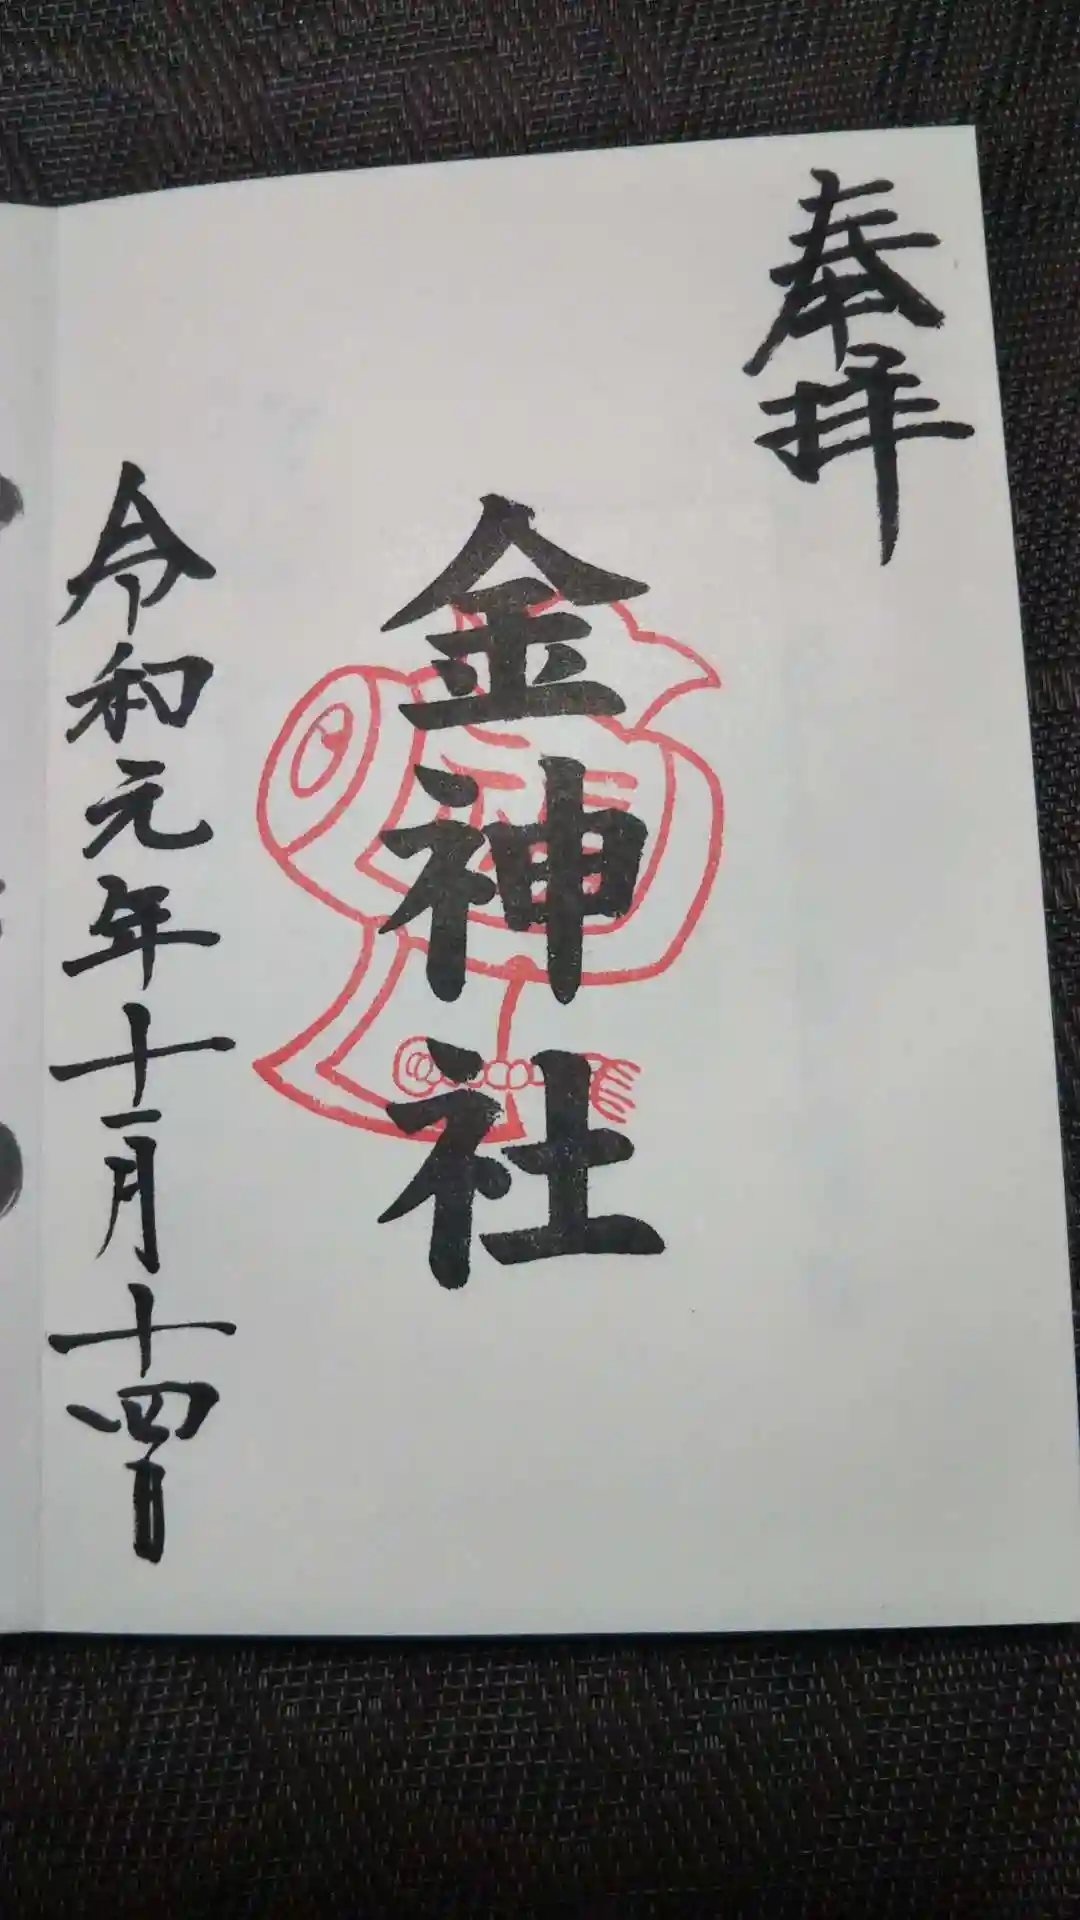 奉拝
金神社
令和元年十一月十四日